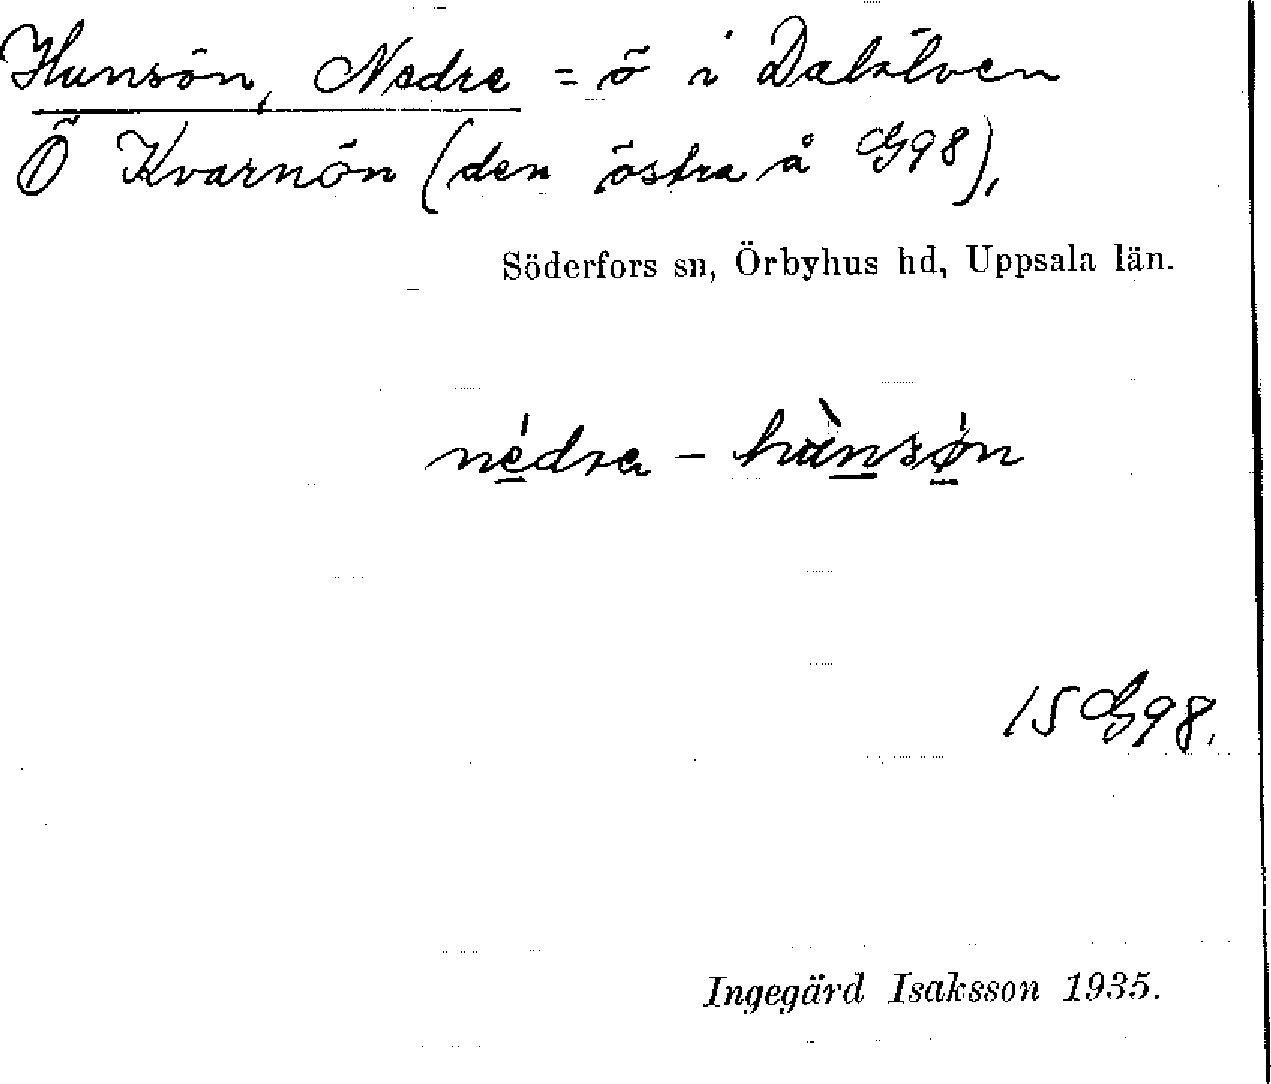 Hunsön, Nedre = ö i Dalälven
Ö Kvarnön (den östra å G98),
Söderfors sn, Örbyhus hd, Uppsala län.
nédra - hùnsøn
15 G98.
Ingegärd Isaksson 1935.